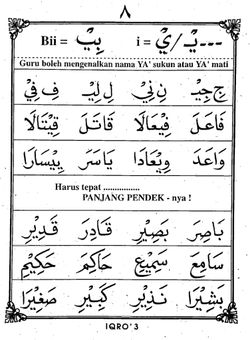 ٨
Bii = بِيْ   i = ـِيـْ/ـِيْ ...
Guru boleh mengenalkan nama YA' sukun atau YA' mati
جِ جِيْـ نِ نِيْ لِ لِيْـ فِ فِيْ
فَاعَلَ فِيْعَالًا قَاتَلَ قِيْتَالًا
وَاعَدَ وِيْعَادًا يَاسَرَ يِيْسَارًا
Harus tepat ...............
PANJANG PENDEK - nya !
بَاصِرَ بَصِيْرٌ قَادَرَ قَدِيْرٌ
سَامِعَ سَمِيْعٌ حَاكِمَ حَكِيْمٌ
بَشِيْرًا نَذِيْرٌ كَبِيْرٌ صَغِيْرًا
IQRO' 3